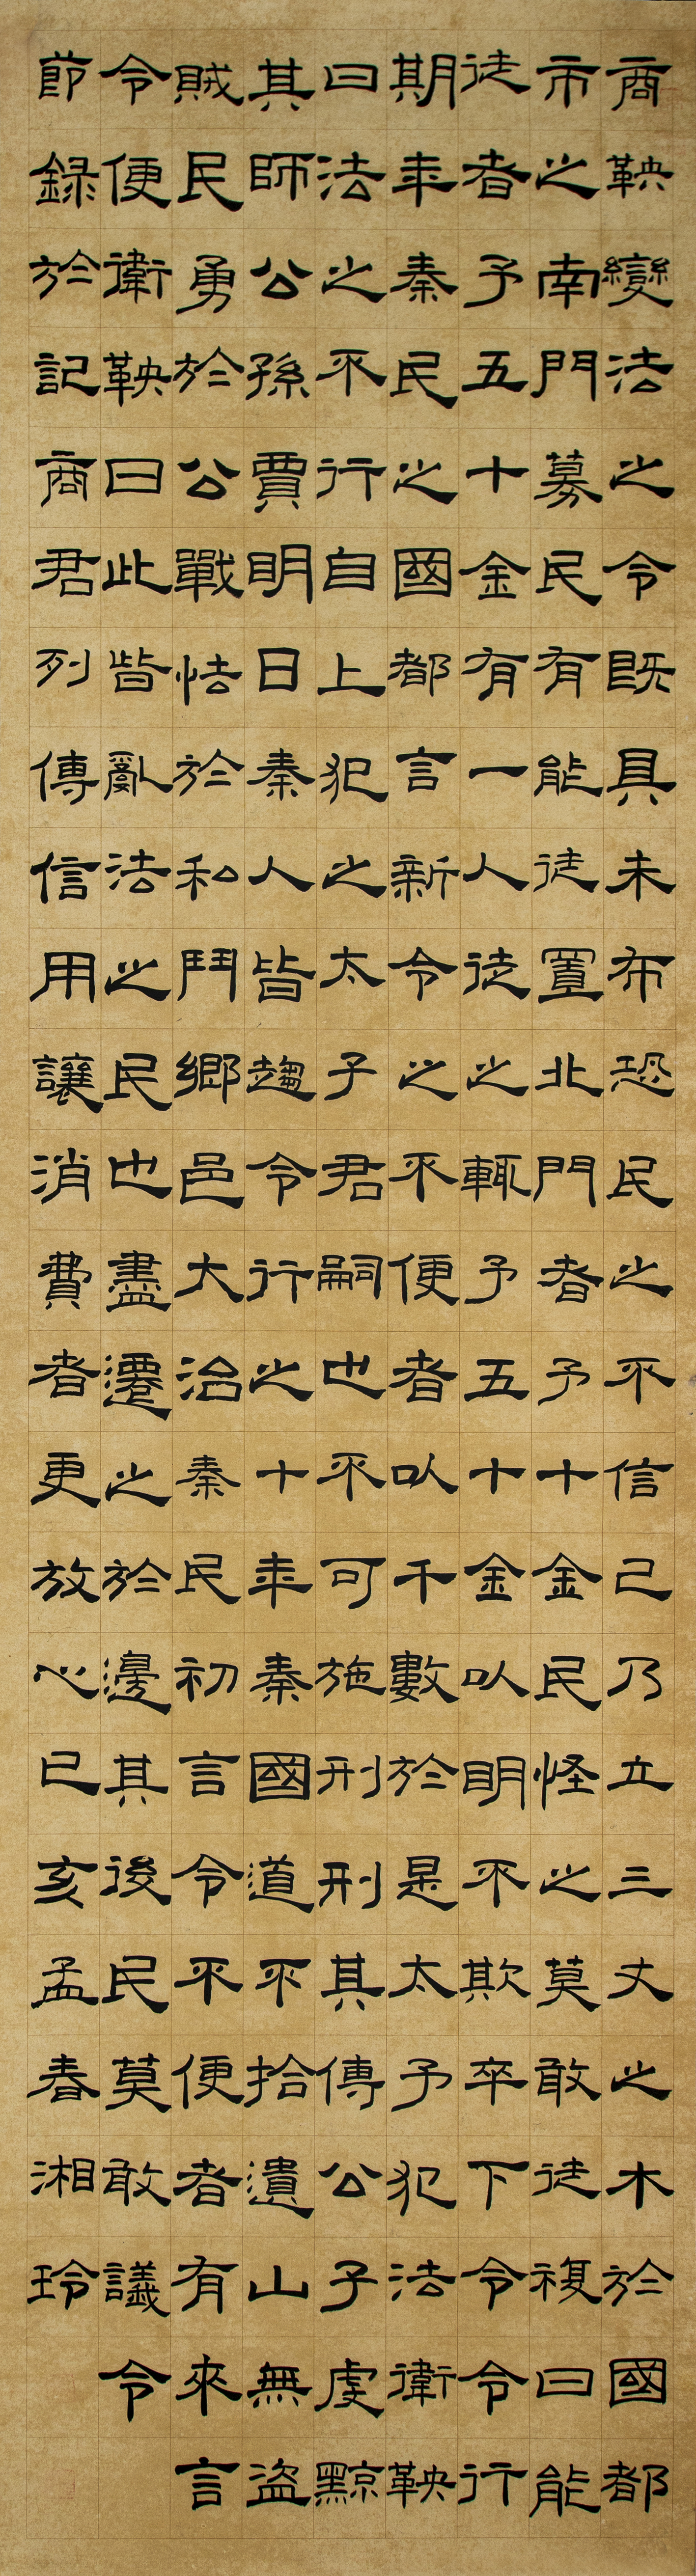 商鞅變法之令既具未布恐民之不信己乃立三丈之木於國都
市之南門募民有能徙置北門者予十金民怪之莫敢徙複曰能
徙者予五十金有一人徙之輒予五十金以明不欺卒下令令行
期年秦民之國都言新令之不便者以千數於是太予犯法衛鞅
曰法之不行自上犯之太子君嗣也不可施刑刑其傅公子虔黥
其師公孫賈明日秦人皆趨令行之十年秦國道不拾遺山無盜
賊民勇於公戰怯於私鬥鄉邑大治秦民初言令不便者有來言
令便衛鞅曰此皆亂法之民也盡遷之於邊其後民莫敢議令
節録於記商君列傳信用讓消費者更放心己亥孟春湘玲